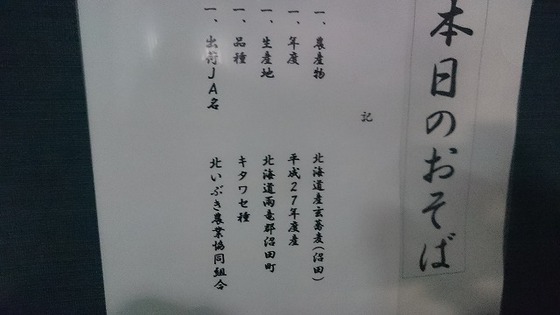 本日のおそば
記
一、農産物 北海道産玄蕎麦(沼田)
一、年度 平成27年度産
一、生産地 北海道雨竜郡沼田町
一、品種 キタワセ種
一、出荷JA名 北いぶき農業協同組合